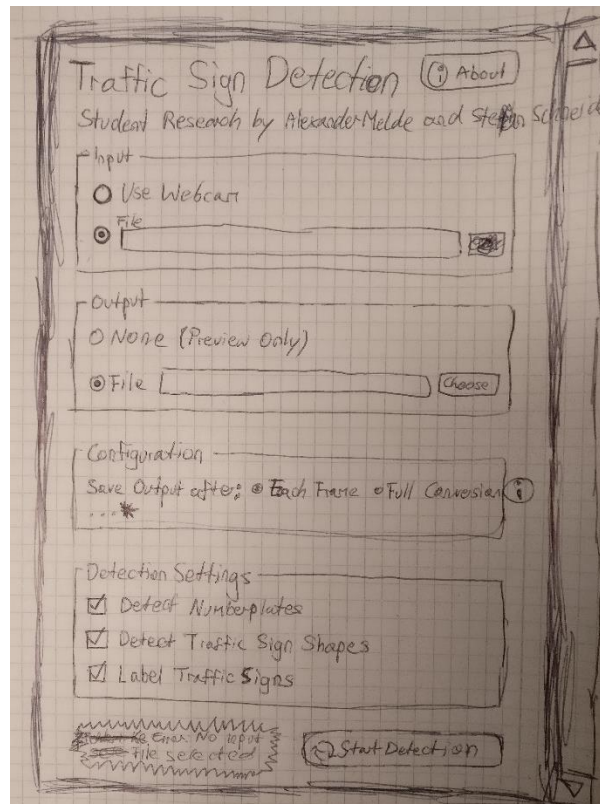 Traffic Sign Detection
i About
Student Research by Alexander Melde and Stefan Schneid
Input
Use Webcam
File
Output
None (Preview Only)
File
Choose
Configuration
Save Output after: Each Frame Full Conversion i
...
Detection Settings
Detect Numberplates
Detect Traffic Sign Shapes
Label Traffic Signs
Error: No input
File selected
Start Detection